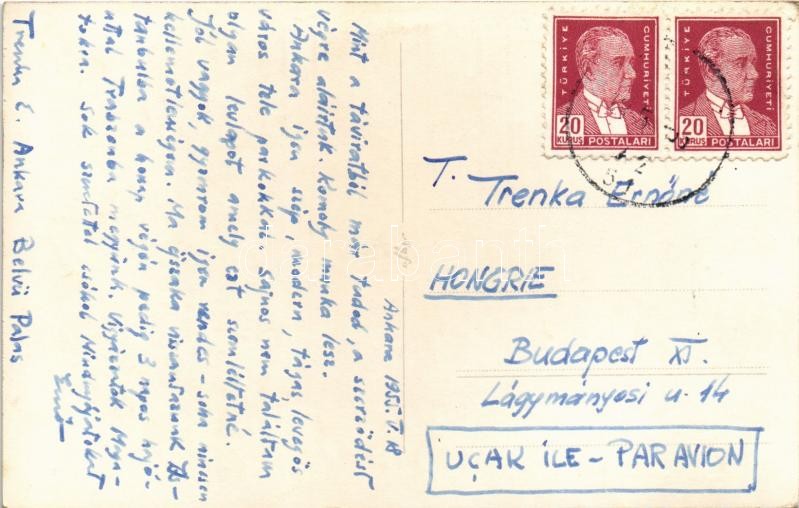 Ankara 1955. V. 18
Mint a táviratból már tudod, a szerződést
végre aláirtuk. Komoly munka lesz.
Ankara igen szép, modern, tágas, levegős
város tele parkokkal. Sajnos nem találtam
olyan levlapot amely ezt szemléltetné.
Jól vagyok, gyomrom igen rendes - soha nincsen
kellemetlenségem. Ma éjszaka visszautazunk Is-
tanbulba a hónap végén pedig 3 napos hajó-
uttal Trabzonba megyünk. Vigyázzatok Maga-
tokra. Sok szeretettel csókol Mindnyájatokat
Ernő
Trenka E. Ankara Belvü Palas
TÜRKİYE CUMHURİYETİ
20 KURUŞ POSTALARI
TÜRKİYE CUMHURİYETİ
20 KURUŞ POSTALARI
T. Trenka Ernőné
HONGRIE
Budapest XI.
Lágymányosi u. 14
UÇAK İLE - PAR AVION
darabanth